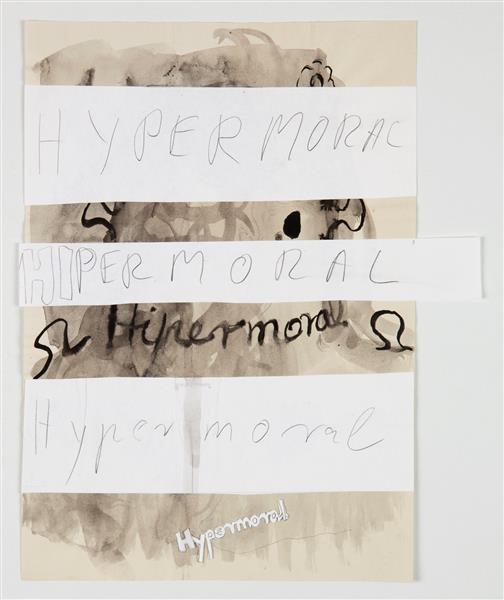 HYPERMORAL
HIPERMORAL
Ω Hipermoral Ω
Hypermoral
Hypermoral